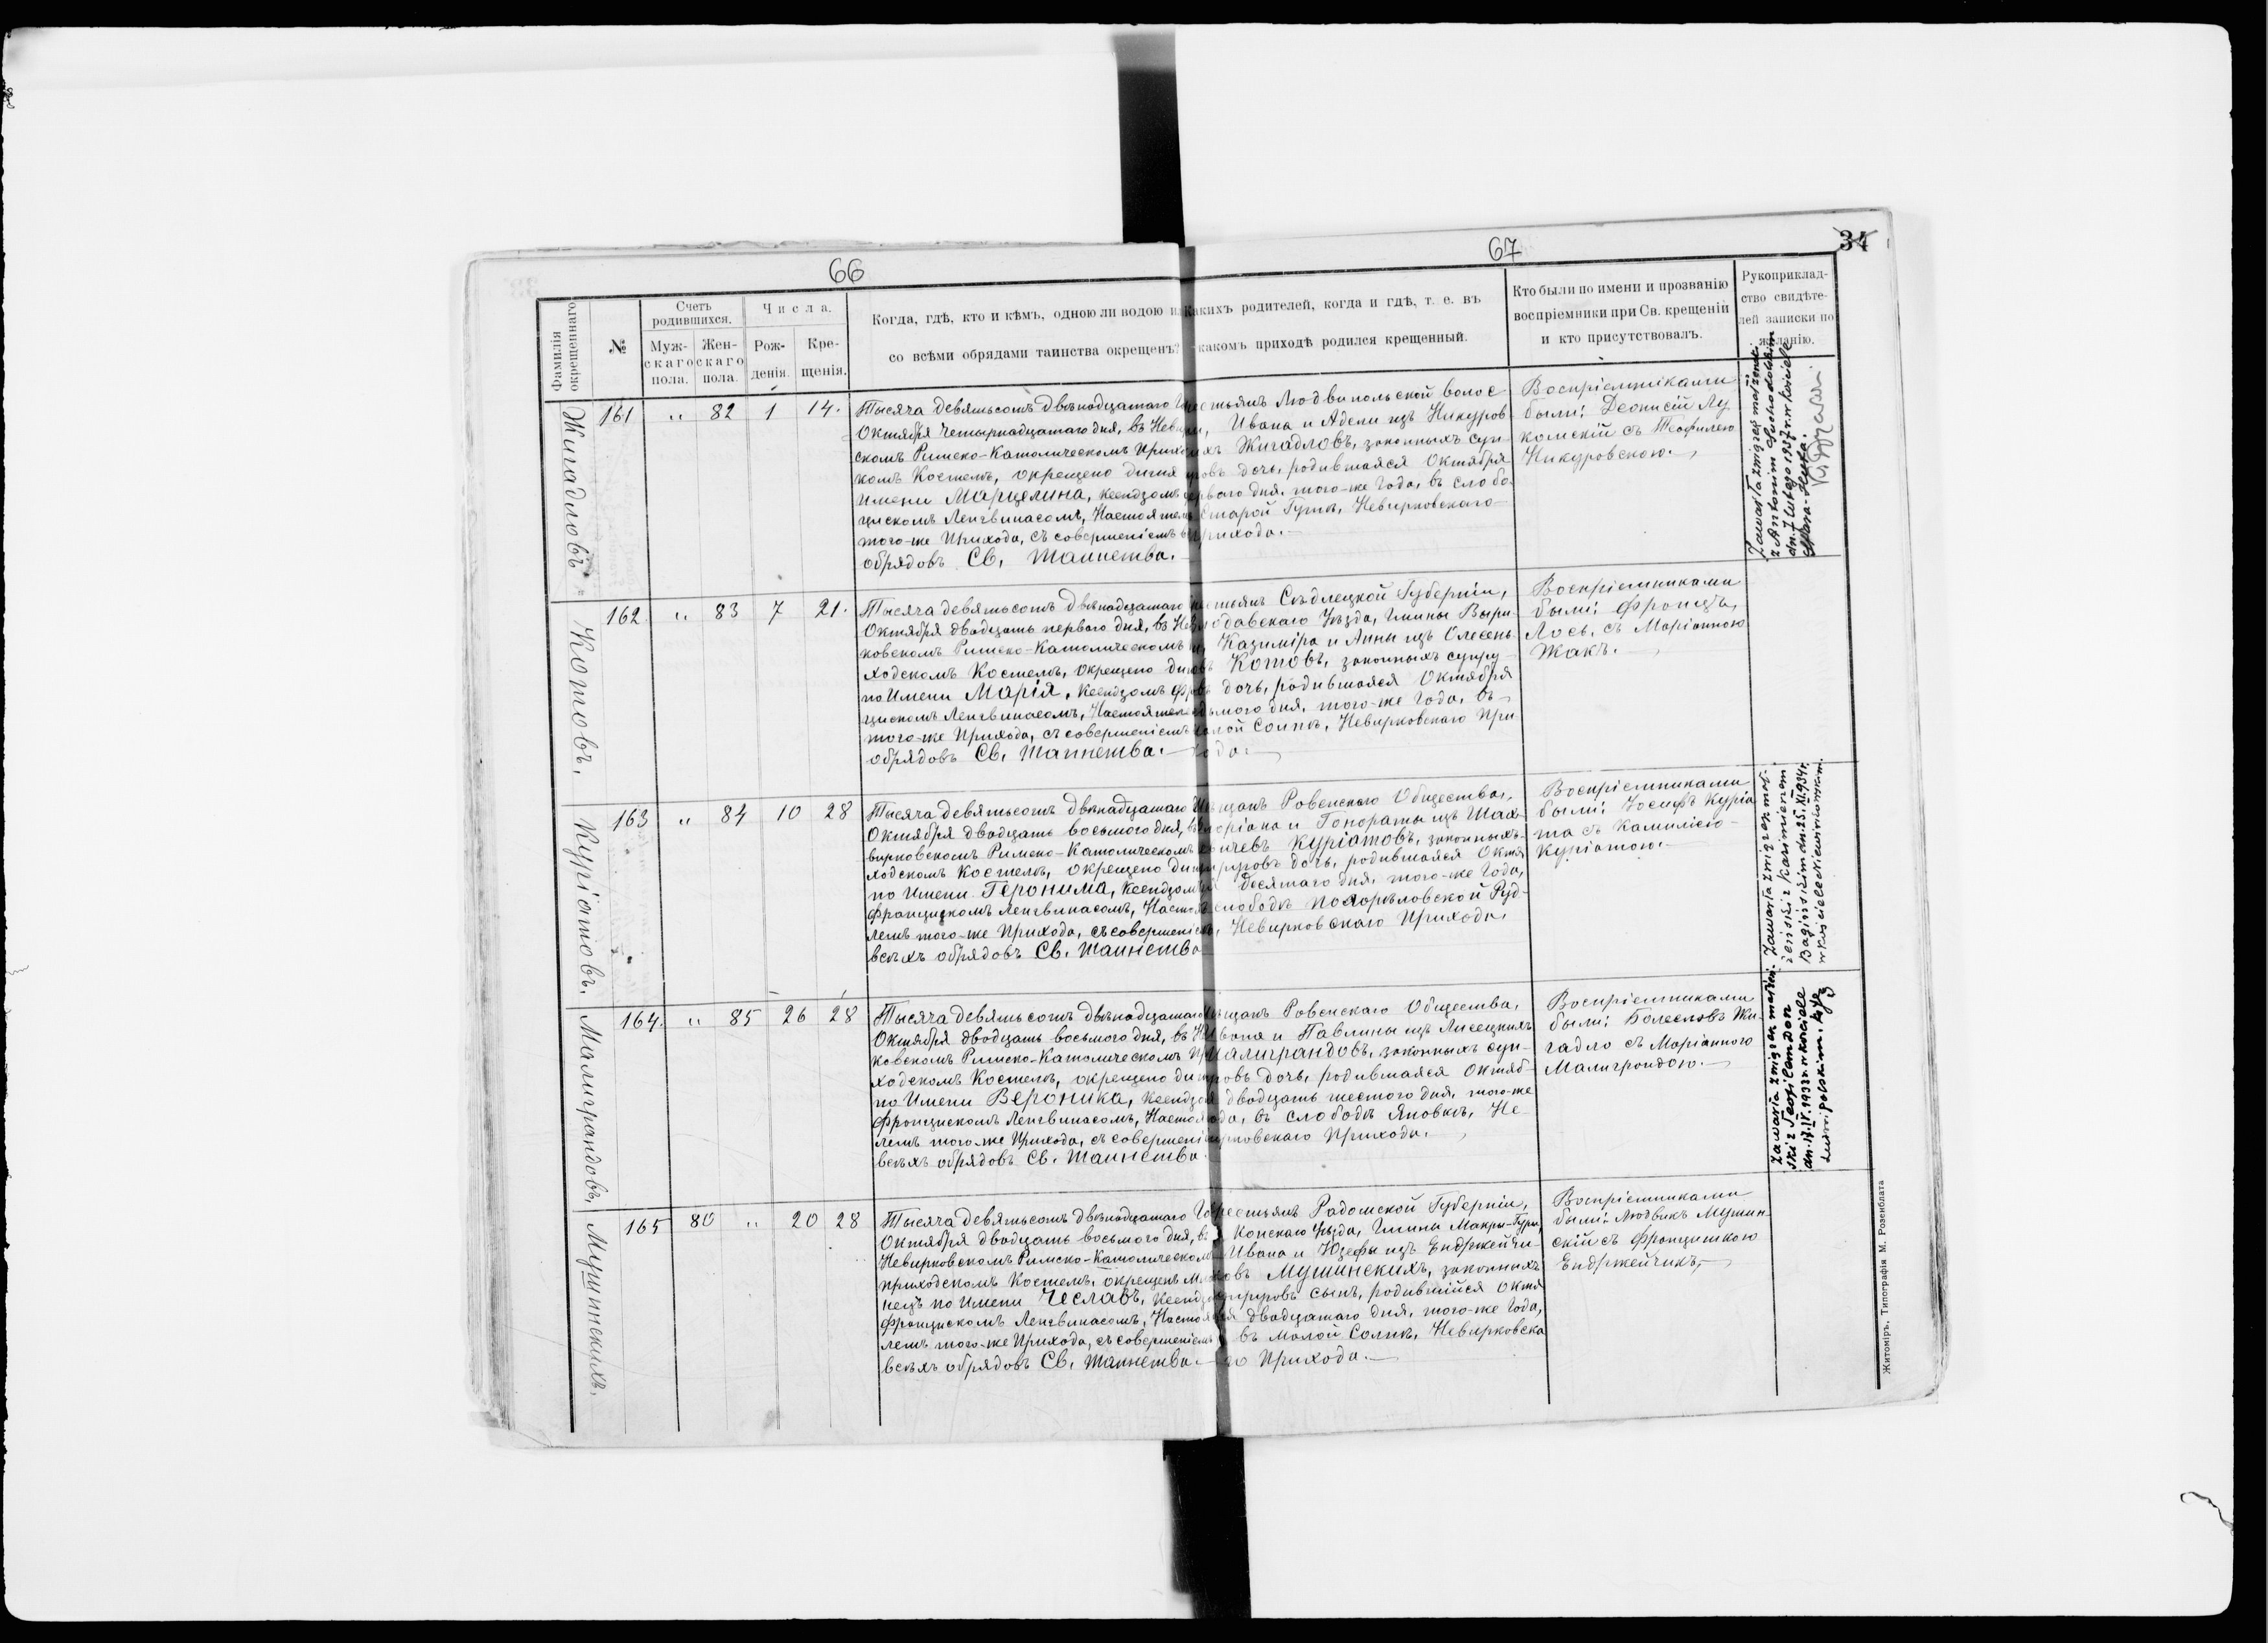 66
67
34
Фамилія окрещеннаго
№
Счетъ родившихся.
Муж-скаго пола.
Жен-скаго пола.
Числа.
Рож-денія.
Кре-щенія.
Когда, гдѣ, кто и кѣмъ, одною ли водою и
со всѣми обрядами таинства окрещенъ?
какихъ родителей, когда и гдѣ, т. е. въ
какомъ приходѣ родился крещенный.
Кто были по имени и прозванію
воспріемники при Св. крещеніи
и кто присутствовалъ.
Рукоприклад-
ство свидѣте-
лей записки по
желанію.
Жигадловъ
161 " 82 1 14.
Тысяча девятьсотъ двѣнадцатаго
Октября четырнадцатаго дня, въ Невир
скомъ Римско-Католическомъ Приход
комъ Костелѣ, окрещено дитя
имени Марцелина, Ксендзомъ
цискомъ Ленгвинасомъ, Настоятел
того-же Прихода, съ совершеніемъ
обрядовъ Св. Таинства.
стьянъ Людвипольской волос
Ивана и Адели изъ Никуров
Жигадловъ, законныхъ суп
овъ дочь, родившаяся Октября
перваго дня, того-же Года, въ слобо
Старой Гутѣ, Невирковскаго
Прихода.
Воспріемниками
были: Деонисій Лу
комскій съ Теофилею
Никуровскою.
Zawarła związek małżeń.
z Antonim Suchodolskim
dn. 7 lutego 1937 r. w kościele
Stara-Huta.
Котовъ.
162 " 83 7 21.
Тысяча девятьсотъ двѣнадцатаго
Октября двадцать перваго дня, въ Нев
ковскомъ Римско-Католическомъ
ходскомъ Костелѣ, окрещено ди
по Имени Марія, Ксендзомъ Фр
цискомъ Ленгвинасомъ, Настоятел
того-же Прихода, съ совершеніемъ
обрядовъ Св. Таинства.
стьянъ Сѣдлецкой Губерніи,
одавскаго Уѣзда, Гмины Выри
Казиміра и Анны изъ Олесень
Котовъ, законныхъ супру
дочь, родившаяся Октября
дьмого дня, того-же Года, въ
алой Солпѣ, Невирковскаго При
хода.
Воспріемниками
были: Францъ
Лось, съ Маріанною
Жакъ.
Куріатовъ.
163 " 84 10 28
Тысяча девятьсотъ двѣнадцатаго
Октября двадцать восьмого дня, въ
вирковскомъ Римско-Католическомъ
ходскомъ Костелѣ, окрещено дит
по Имени Геронима, Ксендзом
Францискомъ Ленгвинасомъ, Насто
лемъ того-же Прихода, съ совершені
всѣхъ обрядовъ Св. Таинства
щанъ Ровенскаго Общества,
оріана и Гонораты изъ Шах
ичевъ Куріатовъ, законныхъ
пруговъ дочь, родившаяся Октя
десятаго дня, того-же Года,
слободѣ Погорѣловской Руд
Невирковскаго Прихода.
Воспріемниками
были: Іосифъ Куріа
та съ Камилією
Куріатою.
Zawarła związek mał-
żeński z Kazimierzem
Bagińskim dn. 25.XI.934 r.
w kościele Niewirkowskim.
Малиграндовъ,
164. " 85 26 28
Тысяча девятьсотъ двѣнадцатаго
Октября двадцать восьмого дня, въ Н
ковскомъ Римско-Католическомъ Пр
ходскомъ Костелѣ, окрещено ди
по Имени Вероника, Ксендзо
Францискомъ Ленгвинасомъ, Настоя
лемъ того-же Прихода, съ совершені
всѣхъ обрядовъ Св. Таинства
щанъ Ровенскаго Общества,
вана и Павлины изъ Лисецкихъ
Малиграндовъ, законныхъ суп
овъ дочь, родившаяся Октяб
двадцать шестого дня, того-же
ода, въ слободѣ Яновкѣ, Не
ирковскаго Прихода.
Воспріемниками
были: Болеславъ Жи-
гадло съ Маріанною
Малигрондою.
Zawarła związek małżeń-
ski z Teofilem Don
dn. 17.IV.1932 r. w kościele
Ludwipolskim.
Мушинскихъ.
165 80 " 20 28
Тысяча девятьсотъ двѣнадцатаго Го
Октября двадцать восьмого дня, въ
Невирковскомъ Римско-Католическом
приходскомъ Костелѣ, окрещенъ мла
нецъ по Имени Чеславъ, Ксендз
Францискомъ Ленгвинасомъ, Настоя
лемъ того-же Прихода, съ совершеніемъ
всѣхъ обрядовъ Св. Таинства.
рестьянъ Радомской Губерніи,
Конскаго Уѣзда, Гмины Мокры-Гури,
Ивана и Юзефы изъ Ендржейчи
овъ Мушинскихъ, законныхъ
пруговъ сынъ, родившійся Октя
двадцатаго дня, того-же Года,
въ Малой Солпѣ, Невирковска
го Прихода.
Воспріемниками
были: Людвикъ Мушин
скій съ Францишкою
Ендржейчикъ,
Житоміръ, Типографія М. Розенблата